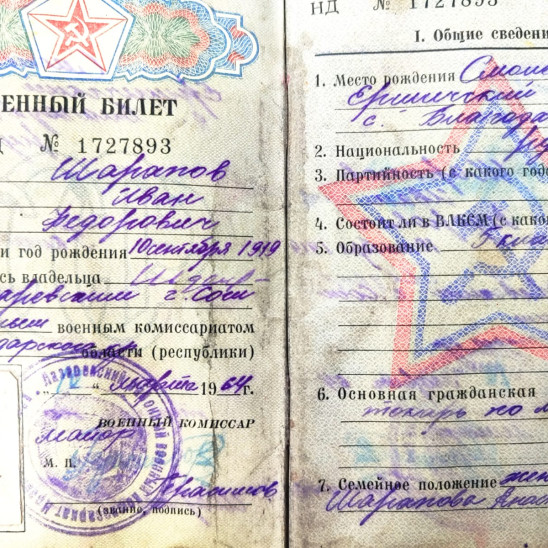 ЕННЫЙ БИЛЕТ
№ 1727893
Шарапов
Иван
Федорович
и год рождения 10 сентября 1919
сь владельца
г. Сочи
военным комиссариатом
области (республики)
"12" марта 1964 г.
ВОЕННЫЙ КОМИССАР
майор
М. П.
Герасимов
(звание, подпись)
НД № 1727893
I. Общие сведени
1. Место рождения Смол
Ершичский
с. Благода
2. Национальность ру
3. Партийность (с какого год
4. Состоит ли в ВЛКСМ (с како
5. Образование 5 кла
6. Основная гражданская
токарь по м
7. Семейное положение жен
Шарапова Анас